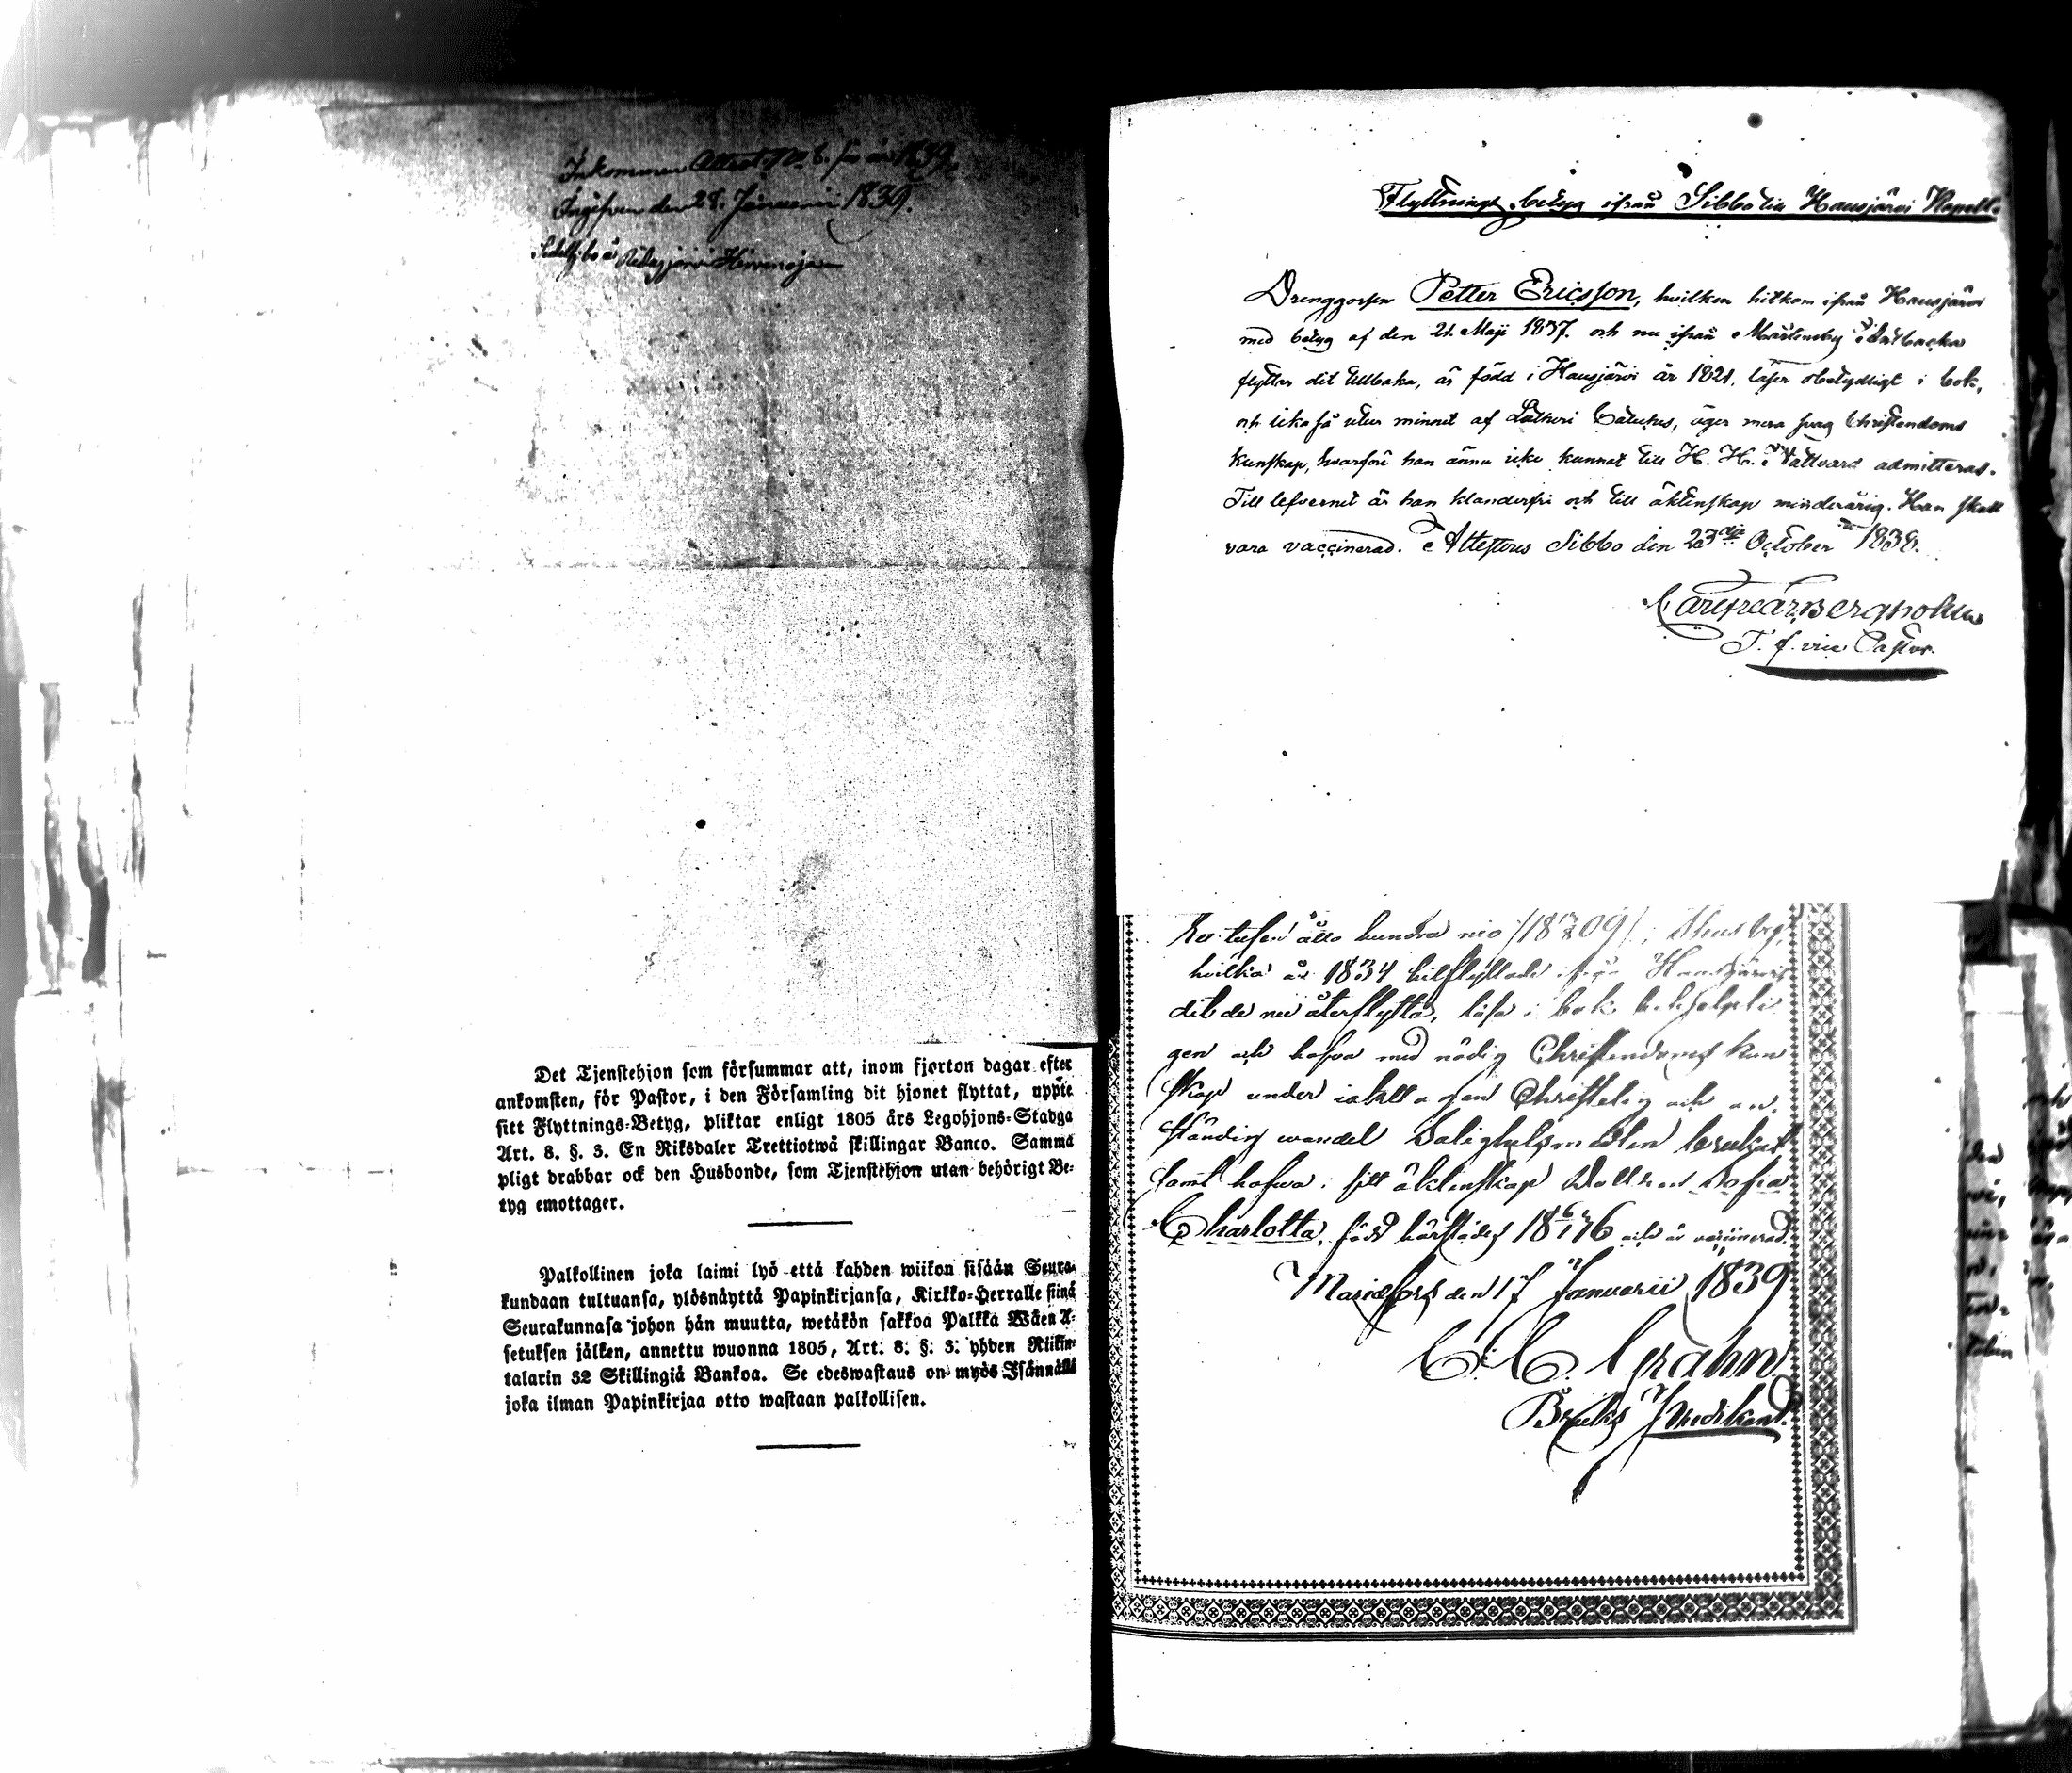 Inkommen Attest N:o 6. för år 1839.
Ingifven den 28. Januarii 1839.
Det Tjenstehjon som försummar att, inom fjorton dagar efter
ankomsten, för Pastor, i den Församling dit hjonet flyttat, uppte
sitt Flyttnings-Betyg, pliktar enligt 1805 års Legohjons-Stadga
Art. 8. §. 3. En Riksdaler Trettiotwå skillingar Banco. Samma
pligt drabbar ock den Husbonde, som Tjenstehjon utan behörigt Be-
tyg emottager.
Palkollinen joka laimi lyö että kahden wiikon sisään Seura-
kundaan tultuansa, ylösnäyttä Papinkirjansa, Kirkko-Herralle siinä
Seurakunnasa johon hän muutta, wetäkön sakkoa Palkka Wäen A-
setuksen jälken, annettu wuonna 1805, Art. 8. §. 3. yhden Riikin-
talarin 32 Skillingiä Bankoa. Se edeswastaus on myös Isännällä
joka ilman Papinkirjaa otto wastaan palkollisen.
Flyttnings betyg ifrån Sibbo till Hausjärvi Kapell.
Drenggossen Petter Ericsson, hvilken hitkom ifrån Hausjärvi
med betyg af den 21. Maji 1837. och nu ifrån Mårtensby
flyttar dit tillbaka, är född i Hausjärvi år 1821, läser obetydligt i bok,
och lika så utur minnet af Lutheri Cateches, äger mera svag Christendoms
kunskap, hvarföre han ännu icke kunnat till H. H. Nattvard admitteras.
Till lefvernet är han klanderfri och till äktenskap minderårig. Han skall
vara vaccinerad. Attesteras Sibbo den 23 October 1838.
T. f. vice Pastor.
tusen åtta hundra nio /1809/,
hvilka år 1834 hitflyttade ifrån Hausjärvi
dit de nu återflytta, läsa i bok behjelpli
gen och hafva med nödig Christendoms kun
skap under iakttagen Christelig och an-
ständig wandel Salighetsmedlen brukat
samt hafwa i sitt äktenskap Dottren Sofia
Charlotta, född härstädes 18 36 och är vaccinerad.
Mariefors den 17 Januarii 1839
C. C. Grahn
Bruks Predikant.